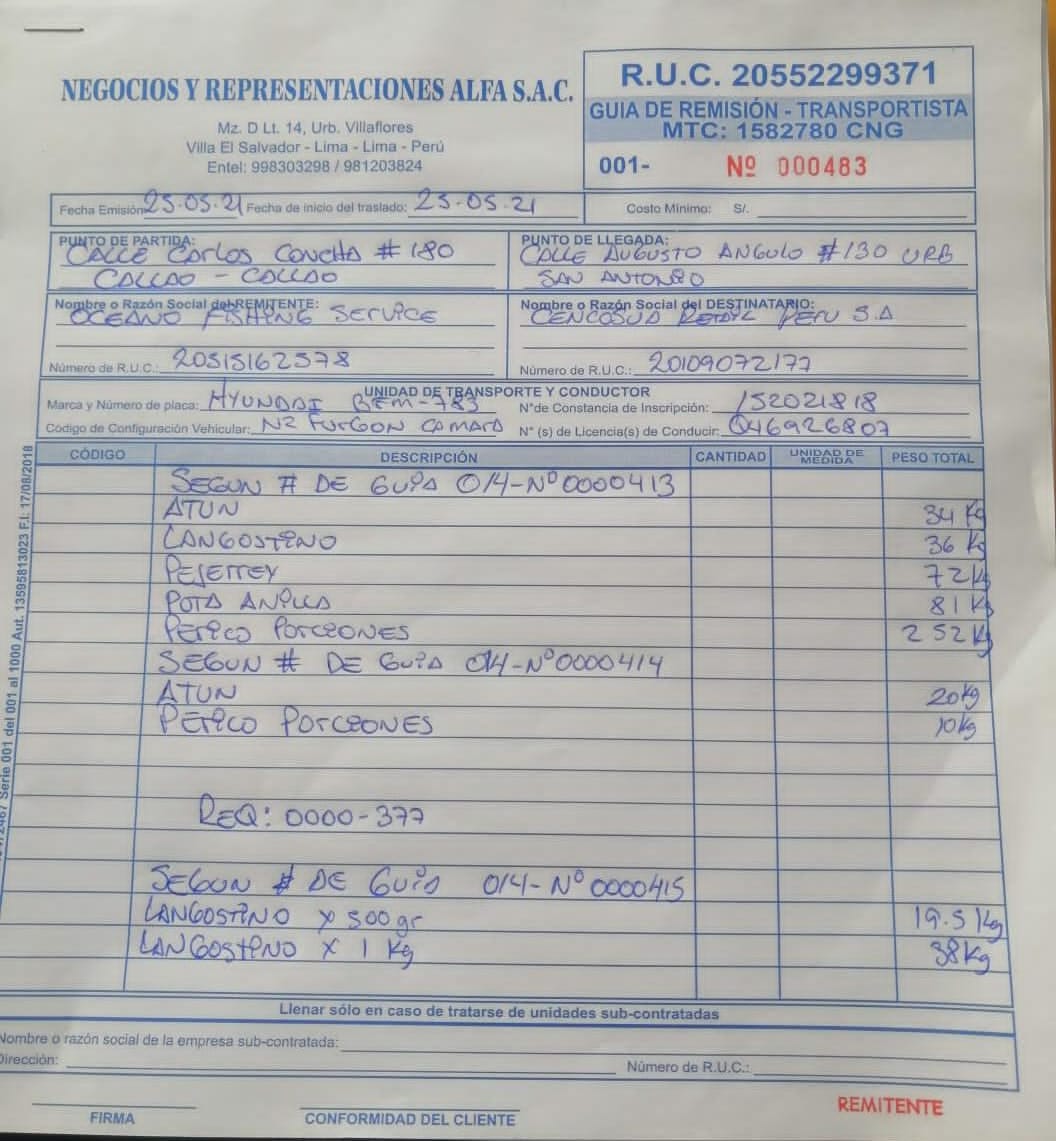 NEGOCIOS Y REPRESENTACIONES ALFA S.A.C.
Mz. D Lt. 14, Urb. Villaflores
Villa El Salvador - Lima - Lima - Perú
Entel: 998303298 / 981203824
R.U.C. 20552299371
GUIA DE REMISIÓN - TRANSPORTISTA
MTC: 1582780 CNG
001- Nº 000483
Fecha Emisión: 25-05-21 Fecha de inicio del traslado: 25-05-21
Costo Mínimo: S/.
PUNTO DE PARTIDA:
CALLE Carlos CONCHA # 180
CALLAO - CALLAO
PUNTO DE LLEGADA:
CALLE AUGUSTO ANGULO #130 URB
SAN ANTONIO
Nombre o Razón Social del REMITENTE:
OCEANO FISHING SERVICE
Número de R.U.C.: 20515162578
Nombre o Razón Social del DESTINATARIO:
CENCOSUD RETAIL PERU S.A
Número de R.U.C.: 20109072177
UNIDAD DE TRANSPORTE Y CONDUCTOR
Marca y Número de placa: HYUNDAI BEM-783 N°de Constancia de Inscripción: 152021818
Código de Configuración Vehicular: N2 FURGON CAMARA N° (s) de Licencia(s) de Conducir: Q46926807
CÓDIGO DESCRIPCIÓN CANTIDAD UNIDAD DE MEDIDA PESO TOTAL
SEGUN # DE GUIA 014-Nº0000413
ATUN 34 Kg
LANGOSTINO 36 Kg
PEJERREY 72 Kg
POTA ANILLA 81 Kg
PERICO PORCIONES 252 Kg
SEGUN # DE GUIA 014-Nº0000414
ATUN 20 Kg
PERICO PORCIONES 10 Kg
REQ: 0000-377
SEGUN # DE GUIA 014-Nº0000415
LANGOSTINO x 500 gr 19.5 Kg
LANGOSTINO x 1 Kg 38 Kg
Llenar sólo en caso de tratarse de unidades sub-contratadas
Nombre o razón social de la empresa sub-contratada:
Dirección: Número de R.U.C.:
FIRMA
CONFORMIDAD DEL CLIENTE
REMITENTE
Serie 001 del 001 al 1000 Aut. 13595813023 F.I. 17/08/2018